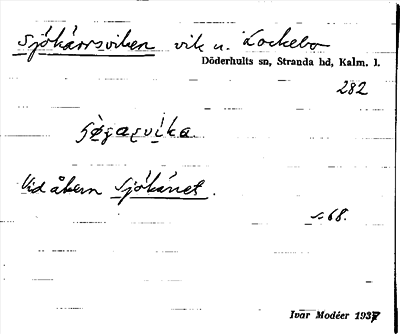 Sjökärrsviken vik u. Lockebo
Döderhults sn, Stranda hd, Kalm. l.
282
Vid åkern Sjökärret.
s. 68.
Ivar Modéer 1937